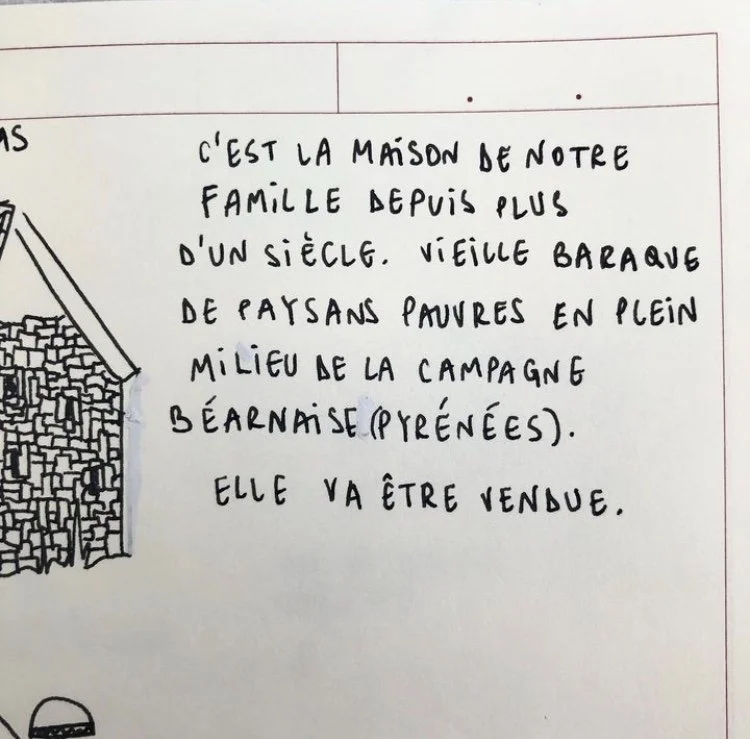 C'EST LA MAISON DE NOTRE
FAMILLE DEPUIS PLUS
D'UN SIÈCLE. VIEILLE BARAQUE
DE PAYSANS PAUVRES EN PLEIN
MILIEU DE LA CAMPAGNE
BÉARNAISE (PYRÉNÉES).
ELLE VA ÊTRE VENDUE.